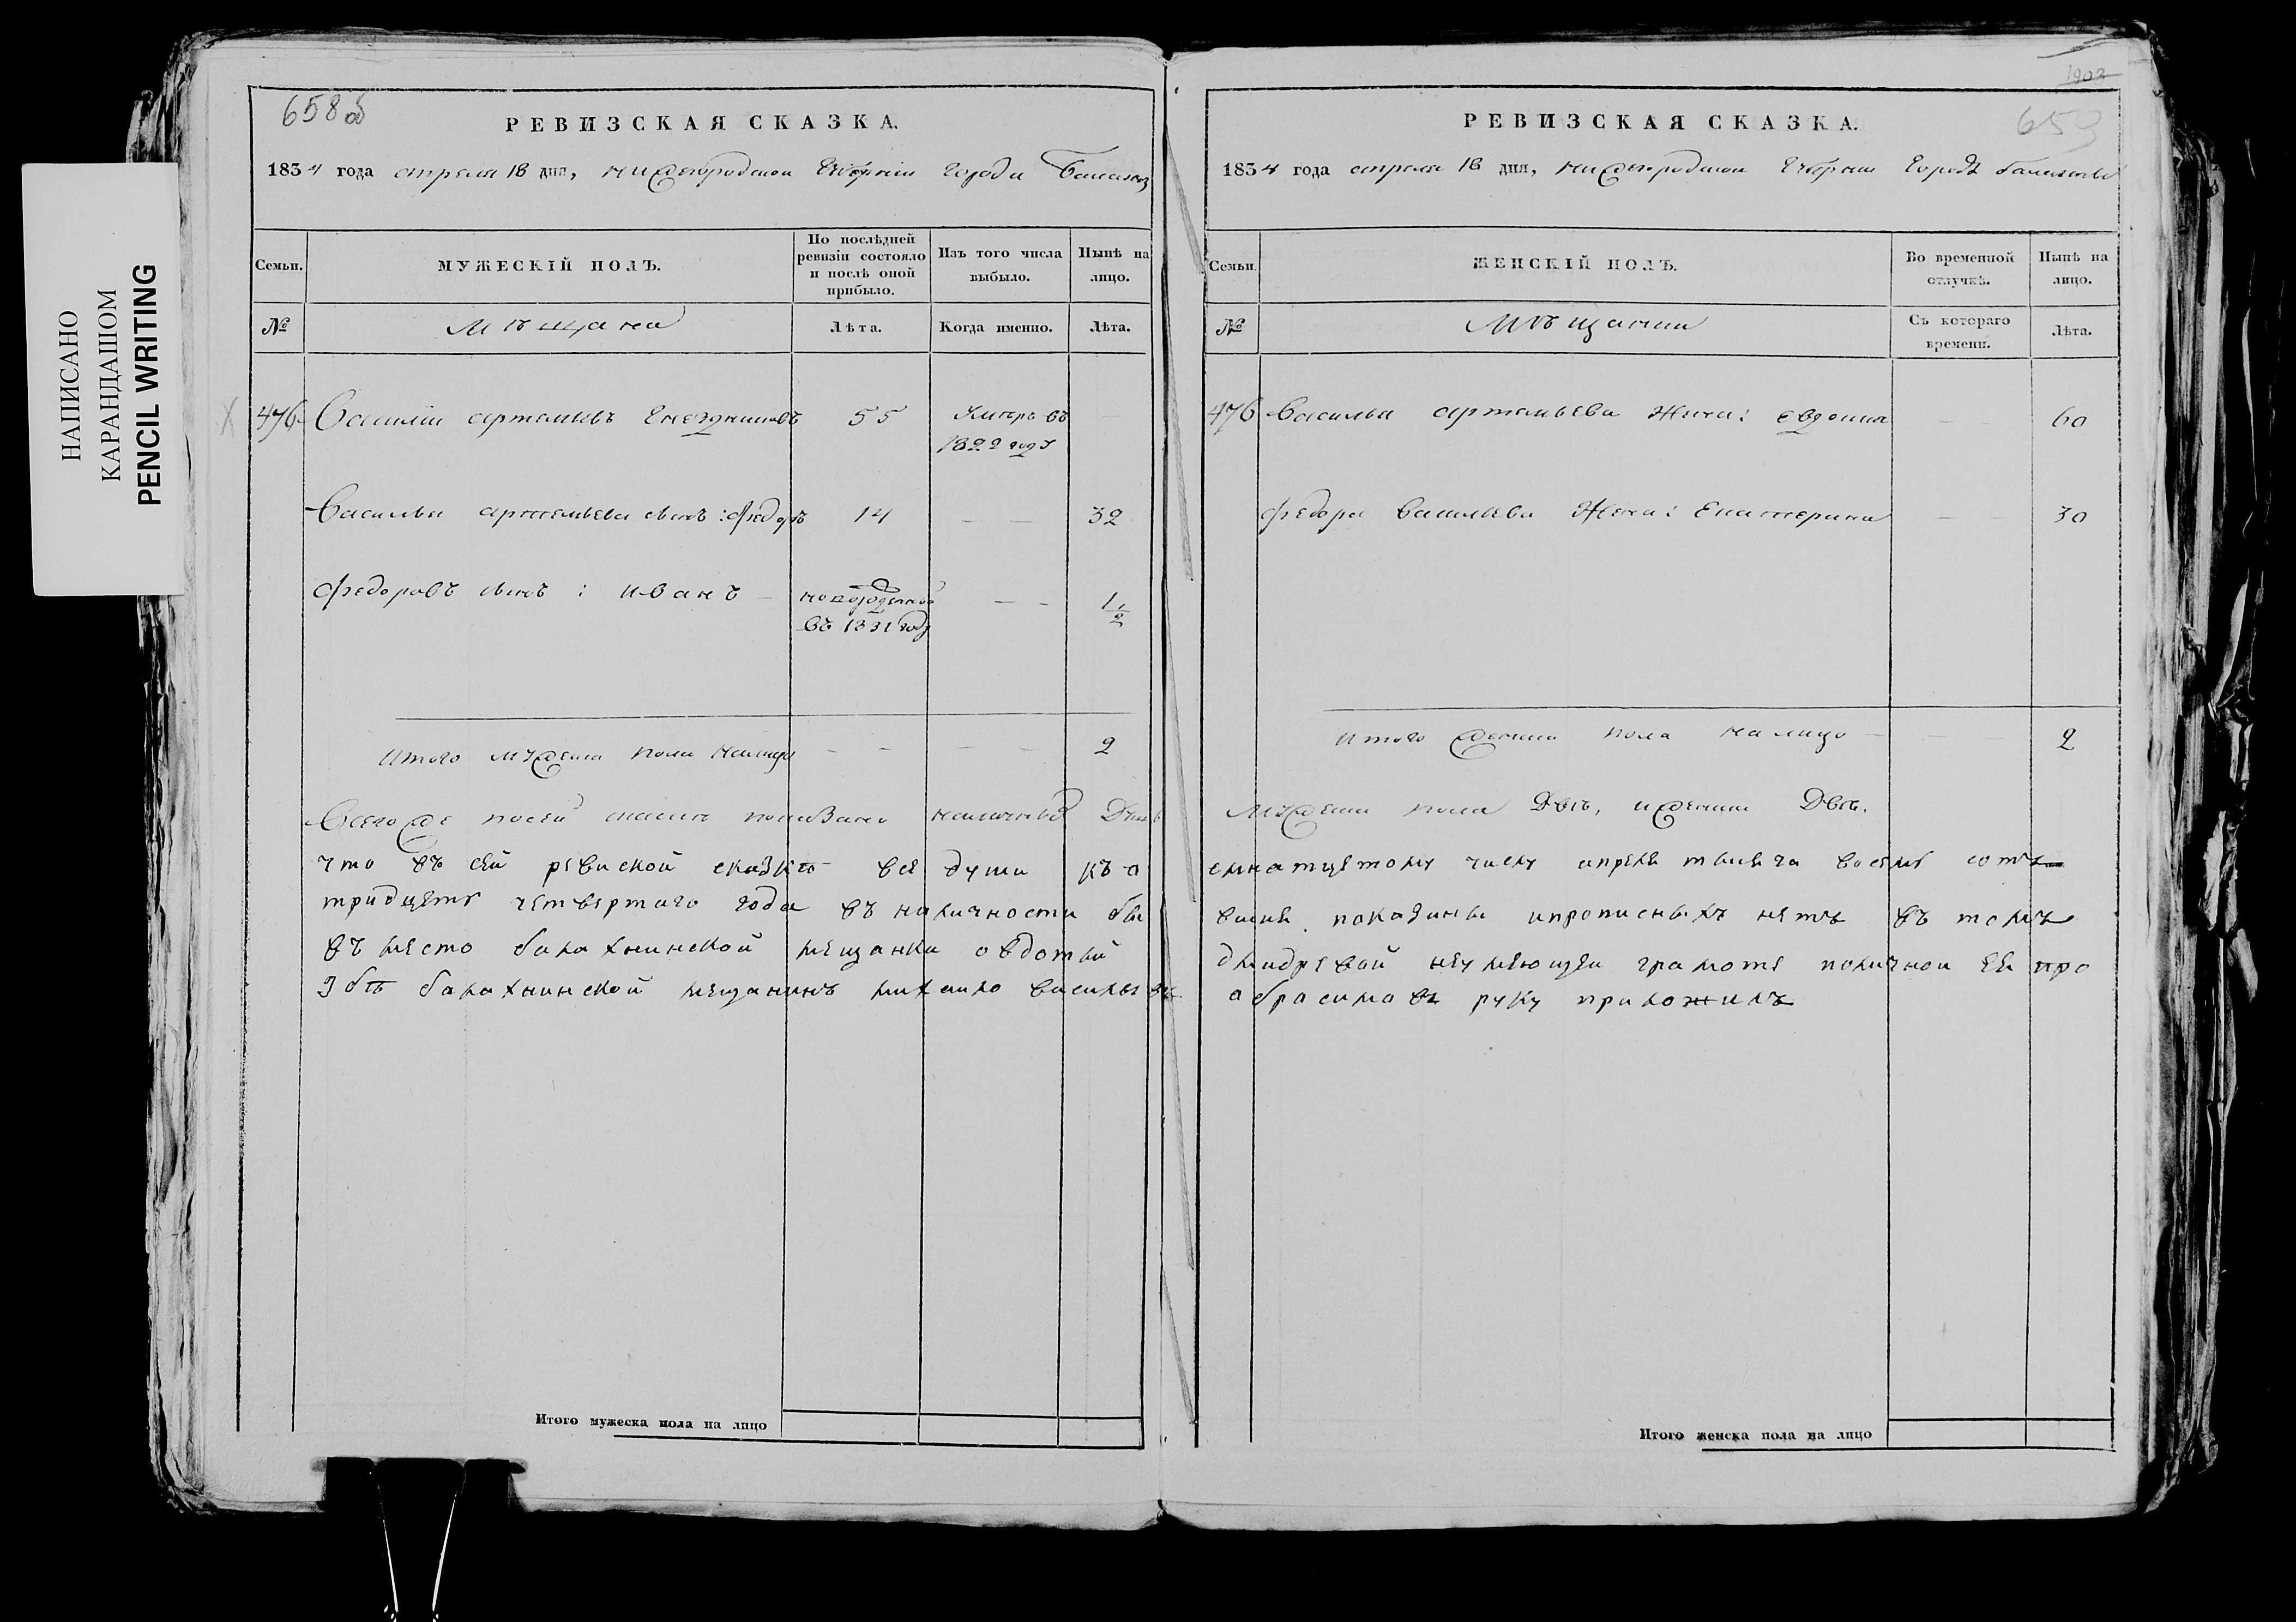 НАПИСАНО
КАРАНДАШОМ
PENCIL WRITING
658 об
РЕВИЗСКАЯ СКАЗКА.
1834 года апреля 18 дня, нижегородской губернии города Балахны
Семьи.
МУЖЕСКІЙ ПОЛЪ.
По послѣдней ревизіи состояло и послѣ оной прибыло.
Изъ того числа выбыло.
Нынѣ на лицо.
№
Мѣщана
Лѣта.
Когда именно.
Лѣта.
476 Василіи артемьевъ 55 умеръ въ
1822 году
Васильи артемьева сынъ: федоръ 14 — — 32
федоровъ сынъ: иванъ — новорожденной — - 1 1/2
въ 1831 году
Итого мужеска пола налицо — - — — 2
Всего же посей скаске показано наличныхъ душъ
что въ сей ревиской сказкѣ все души къ о
тридцеть четвертаго года въ наличности бы
въ место балахнинской мещанки овдотьи
балахнинской мещанинъ михаило васильевъ
Итого мужеска пола на лицо
1902
659
РЕВИЗСКАЯ СКАЗКА.
1834 года апреля 18 дня, нижегородской губернии города балахны
Семьи.
ЖЕНСКІЙ ПОЛЪ.
Во временной отлучкѣ.
Нынѣ на лицо.
№
Мѣщанки
Съ котораго времени.
Лѣта.
476 Васильи артемьева жена: евдокия — — 60
федора васильева жена: Екатерина — — 30
Итого женска пола налицо — — — 2
Мужеска пола двѣ, и женска двѣ.
семнатцетому числу апреля тысеча восемь сотъ
показаны ипрописныхъ нетъ въ томъ
неумеющеи грамоте поличнои ея про
абрасимовъ руку приложилъ
Итого женска пола на лицо